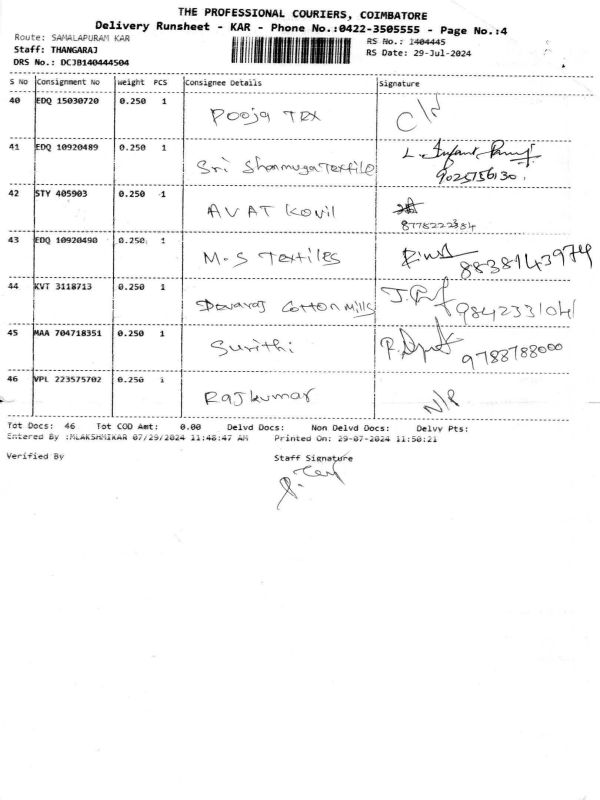 THE PROFESSIONAL COURIERS, COIMBATORE
Delivery Runsheet - KAR - Phone No.:0422-3505555 - Page No.:4
Route: SAMALAPURAM KAR
RS No.: 1404445
Staff: THANGARAJ
RS Date: 29-Jul-2024
DRS No.: DCJB140444504
S No Consignment No Weight PCS Consignee Details Signature
40 EDQ 15030720 0.250 1 Pooja TEX
41 EDQ 10920489 0.250 1 Sri ShanmugaTextiles 9025756130.
42 STY 405903 0.250 1 AVAT Kovil 8778222384
43 EDQ 10920490 0.250 1 M.S Textiles 8838143974
44 KVT 3118713 0.250 1 Devaraj Cotton Mills 9842331041
45 MAA 704718351 0.250 1 Surithi 9788788000
46 VPL 223575702 0.250 1 Rajkumar N/P
Tot Docs: 46 Tot COD Amt: 0.00 Delvd Docs: Non Delvd Docs: Delvy Pts:
Entered By :MLAKSHMIKAR 07/29/2024 11:48:47 AM Printed On: 29-07-2024 11:50:21
Verified By Staff Signature